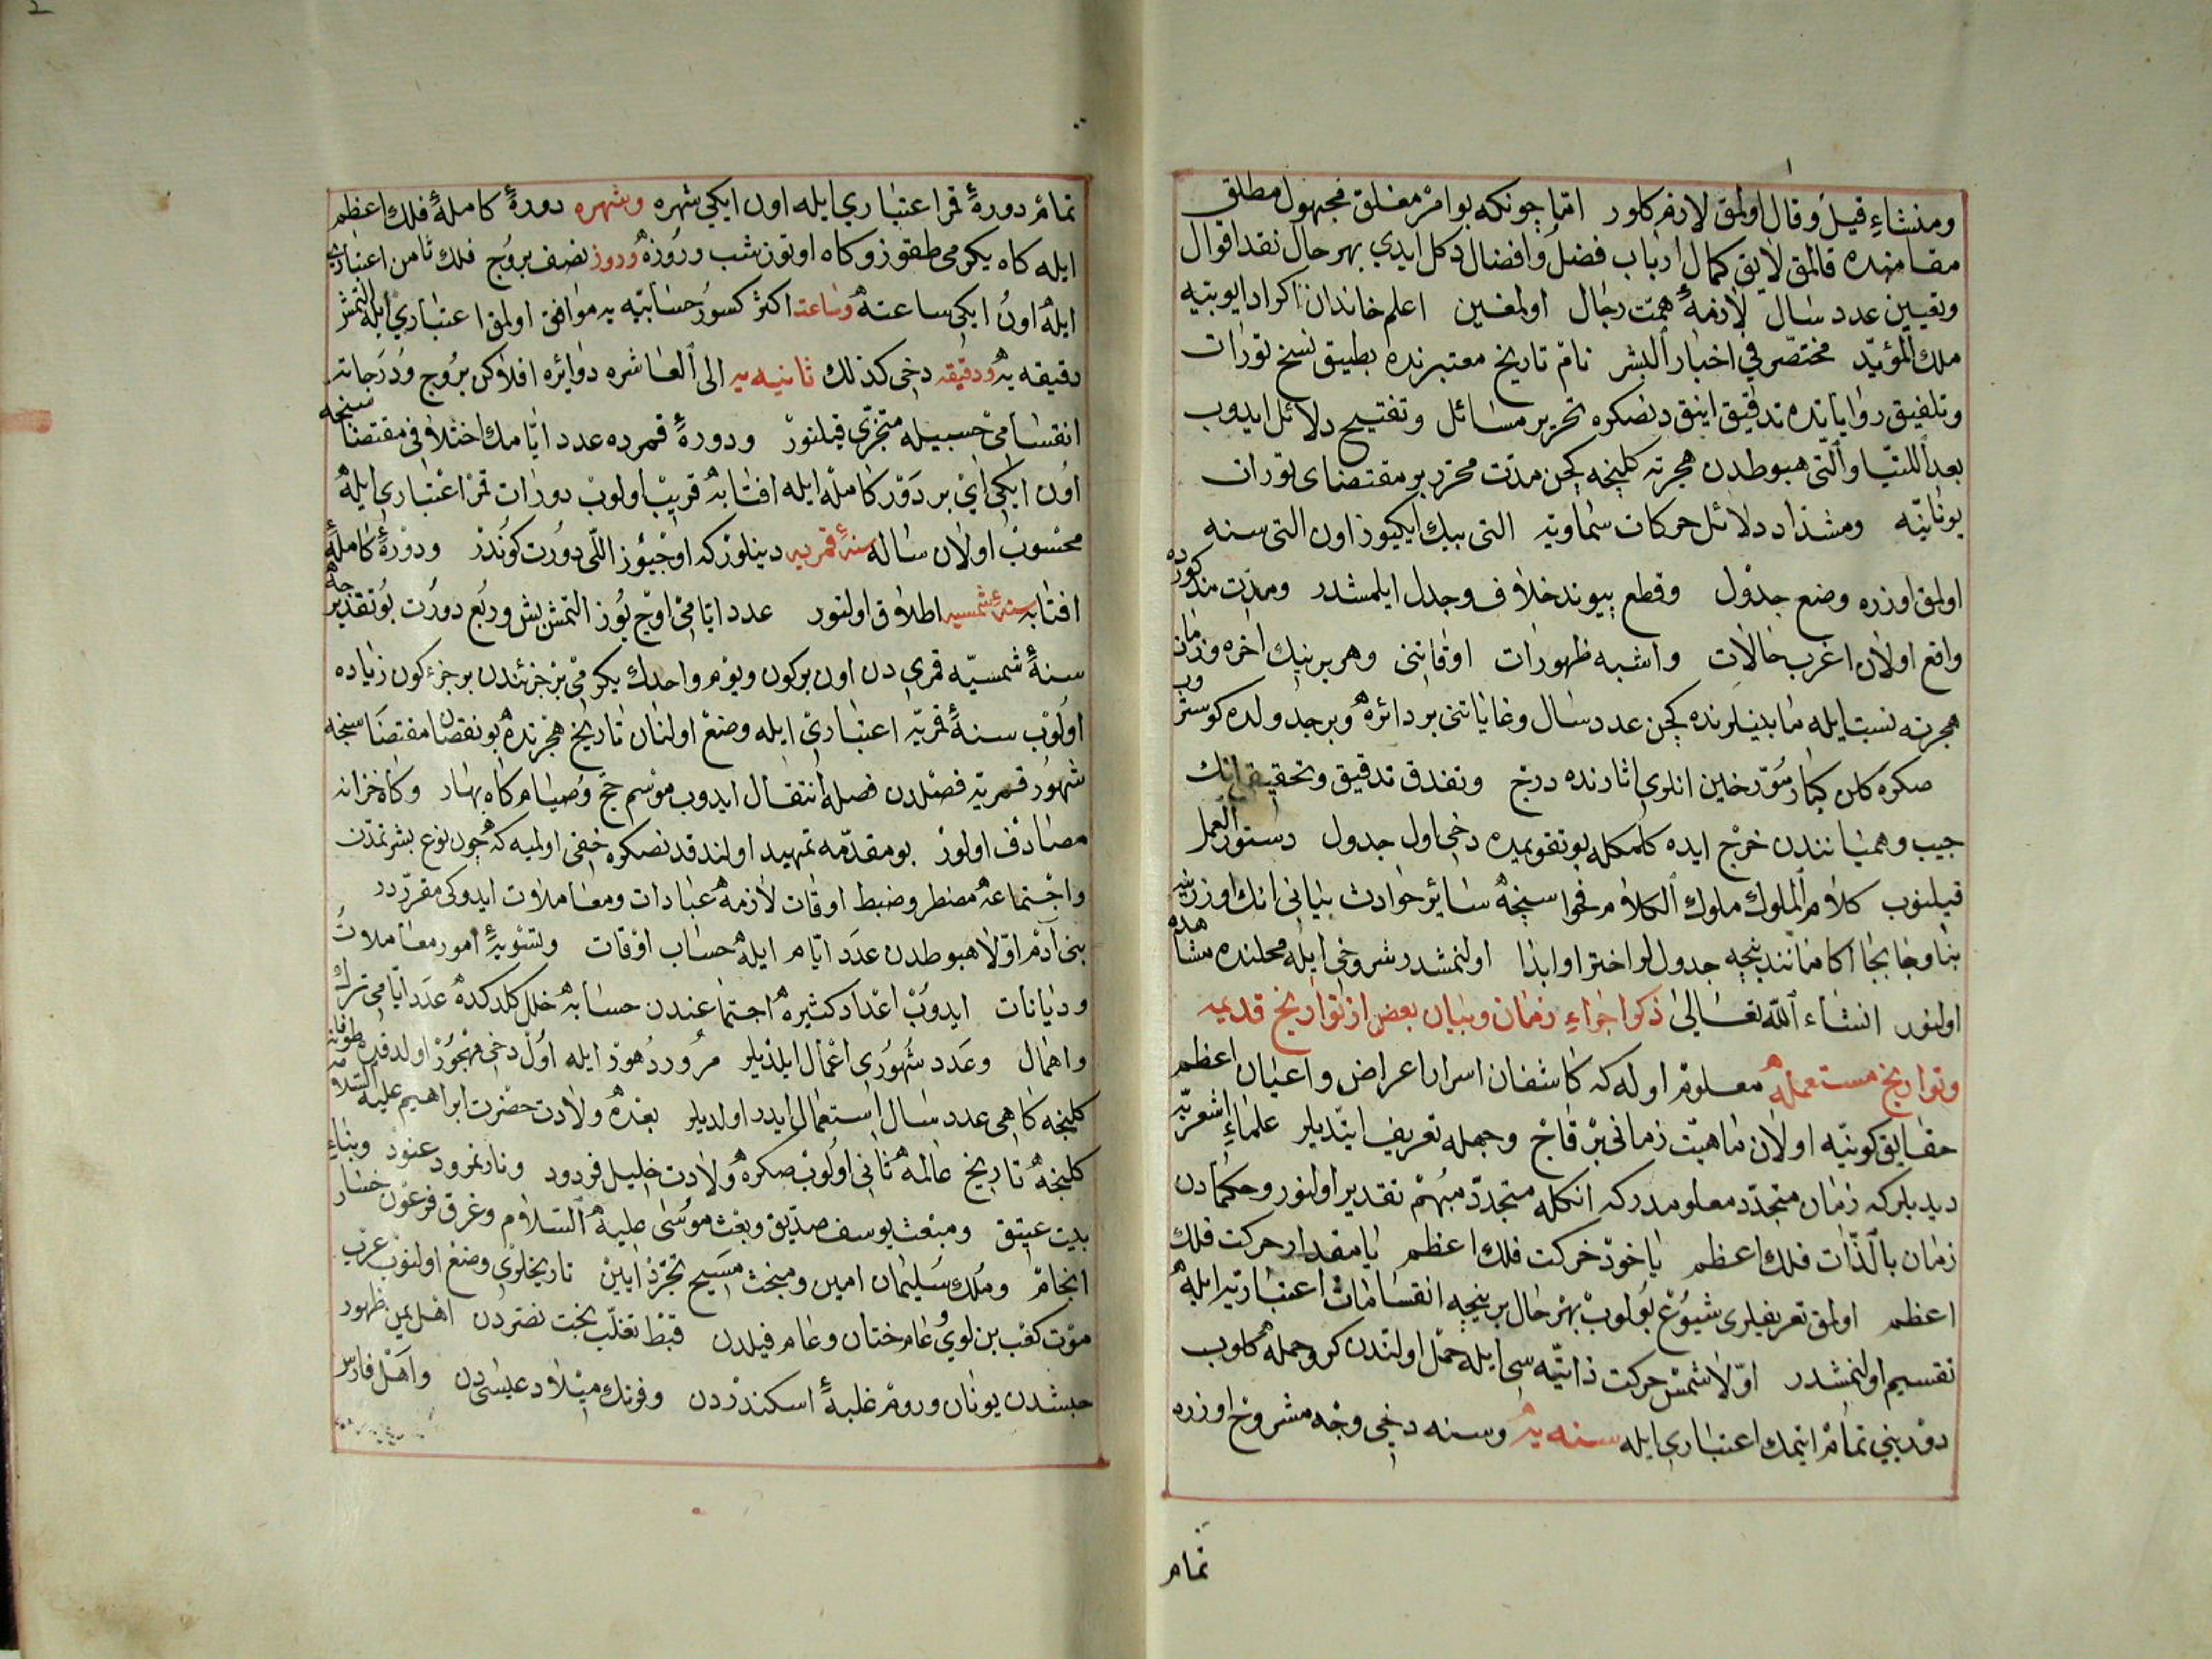 ومنشاءِ قيل وقال اولمق لازم كلور امّا چونكه بو امر مغلق مجهول مطلق
مقامنده قالمق لايق كمال ارباب فضل وافضال دكل ايدي بهر حال نقد اقوال
وتعيين عدد سال لازمهٔ همّت رجال اولمغين اعلم خاندان اكراد ايوبيّه
ملك المؤيّد مختصر في اخبار البشر نام تاريخ معتبرنده تطبيق نسخ تورات
وتلفيق رواياتده تدقيق ايتدقدنصكره تحرير مسائل وتفتيح دلائل ايدوب
بعد اللتيّا والّتى هبوطدن هجرته كلنجه كچن مدّت محرّر بر مقتضاى تورات
يونانيّه ومشدّاد دلائل حركات سماويّه التى بيك ايكيوز اون التى سنه
اولمق اوزره وضع جدول وقطع پيوند خلاف وجدل ايلمشدر ومدّت مذكورده
واقع اولان اغرب حالات واشبه ظهورات اوقاتنى وهر برينك آخره وزمان
هجرته نسبت ايله مابينلرنده كچن عدد سال وغاياتنى بر دائره وبر جدولده كوستروب
صكره كلن كبار مؤرّخين انلرى اثارنده درج ونقد تدقيق وتحقيقى انك
جيب وهميانندن خرج ايده كلمكله بو تقويمده دخى اول جدول دستور العمل
قيلنوب كلام الملوك ملوك الكلام فحواسنجه سائر حوادث بيانى انك اوزرينه
بنا وجابجا اكا مانند نيجه جدوللر اختراو ابدا اولنمشدر شروحى ايله محلنده مشاهده
اولنور انشاء الله تعالى ذكر اجزاءِ زمان وبيان بعض از تواريخ قديمه
وتواريخ مستعمله معلوم اوله كه كاشفان اسرار اعراض واعيان اعظم
حقايق كونيّه اولان ماهيّت زمانى بر قاچ وجهله تعريف ايتديلر علماءِ اشعريّه
ديديلركه زمان متجدّد معلومدركه انكله متجدّد مبهم تقدير اولنور وحكمادن
زمان بالذّات فلك اعظم ياخود حركت فلك اعظم يا مقدار حركت فلك
اعظم اولمق تعريفلرى شيوع بولوب بهر حال بر نيجه انقسامات اعتباريّه ايله
تقسيم اولنمشدر اوّلا شمس حركت ذاتيّه سى ايله حمل اولندن كرو حمله كلوب
دورينى تمام ايتمك اعتبارى ايله سنه يه وسنه دخى وجه مشروح اوزره
تمام
تمام دورهٔ قمر اعتباري ايله اون ايكى شهره وشهره دورهٔ كاملهٔ فلك اعظم
ايله كاه يكرمى طقوز وكاه اوتوز شب وروزه وروز نصف بروج فلك ثامن اعتبارى
ايله اون ايكى ساعته وساعت اكثر كسور حسابيّه يه موافق اولمق اعتبارى ايله التمش
دقيقه يه ودقيقه دخى كذلك ثانيه يه الى العاشره دوائره افلاكن بروج ودرجاته
انقسامى حسبيله متجزّى قيلنور ودورهٔ قمرده عدد ايّامك اختلافى مقتضاسنجه
اون ايكى آى بر دور كامله ايله افتابه قريب اولوب دورات قمر اعتبارى ايله
محسوب اولان ساله سنهٔ قمريه دينلور كه اوچيوز اللى دورت كوندر ودورهٔ كاملهٔ
افتابه سنهٔ شمسيه اطلاق اولنور عدد ايّامى اوچ يوز التمش بش وربع دورت بو تقديرجه
سنهٔ شمسيّه قمرى دن اون بر كون ويوم واحدك يكرمى بر جزئندن بر جزءكون زياده
اولوب سنهٔ قمريّه اعتبارى ايله وضع اولنان تاريخ هجرتده بو نقصان مقتضاسنجه
شهور قمريّه فصلدن فصله انتقال ايدوب موسم حج وصيام كاه بهار وكاه خزانه
مصادف اولور بو مقدّمه تمهيد اولندقدنصكره خفى اولميه كه چون نوع بشر تمدّن
واجتماعه مضطر وضبط اوقات لازمهٔ عبادات ومعاملات ايدوكى مقرّردر
بنى آدم اوّلا هبوطدن عدد ايّام ايله حساب اوقات وتسويهٔ امور معاملات
وديانات ايدوب اعداد كثيره اجتماعندن حسابه خلل كلدكده عدد ايّامى ترك
واهمال وعدد شهورى اعمال ايلديلر مرور دهور ايله اول دخى مهجور اولدقدن طوفانه
كلنجه كاهى عدد سال استعمال ايدر اولديلر بعده ولادت حضرت ابراهيم عليه السلامه
كلنجه تاريخ عالمه ثانى اولوب صكره ولادت خليل فردود ونار نمرود عنود وبناءِ
بيت عتيق ومبعث يوسف صدّيق وبعث موسى عليه السّلام وغرق فرعون خسار
انجام وملك سليمان امين ومبحث مسيح تجرّد ايين تاريخلرى وضع اولنوب عرب
موت كعب بن لوي وعام ختان وعام فيلدن قبط تغلّب بخت نصردن اهل يمن ظهور
حبشدن يونان وروم غلبهٔ اسكندردن وفرنك ميلاد عيسى دن واهل فارس